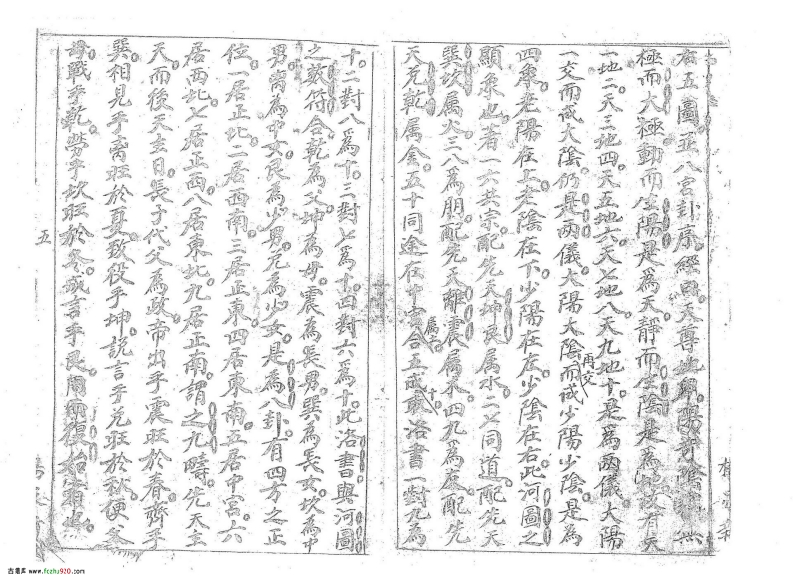 右五圖并八宮卦序經曰天尊地卑陽奇陰
極而大極動而生陽是爲天靜而生陰是爲地故有天
一地二天三地四天五地六天七地八天九地十是爲兩儀大陽
一交而成大陰仍是兩儀大陽大陰再交而成少陽少陰是為
四象老陽在上老陰在下少陽在左少陰在右此河圖之
顯象也著一六共宗配先天坤艮属水二七同道配先天
巽坎属火三八爲朋配先天離震属木四九爲友配先
天兌乾属金五十同途在中宮属土合五成十洛書一對九爲
十二對八爲十三對七爲十四對六爲十此洛書與河圖
之數符合乾爲父坤爲母震爲長男巽爲長女坎爲中
男离爲中女艮爲少男兌爲少女是爲八卦有四方之正
位一居正北二居西南三居正東四居東南五居中宮六
居西北七居正西八居東北九居正南謂之九疇先天主
天而後天主日長子代父爲政帝出乎震旺於春齊乎
巽相見乎离旺於夏致役乎坤説言乎兌旺於秋便爻
母戰乎乾勞乎坎旺於冬成言乎艮周而復始
五